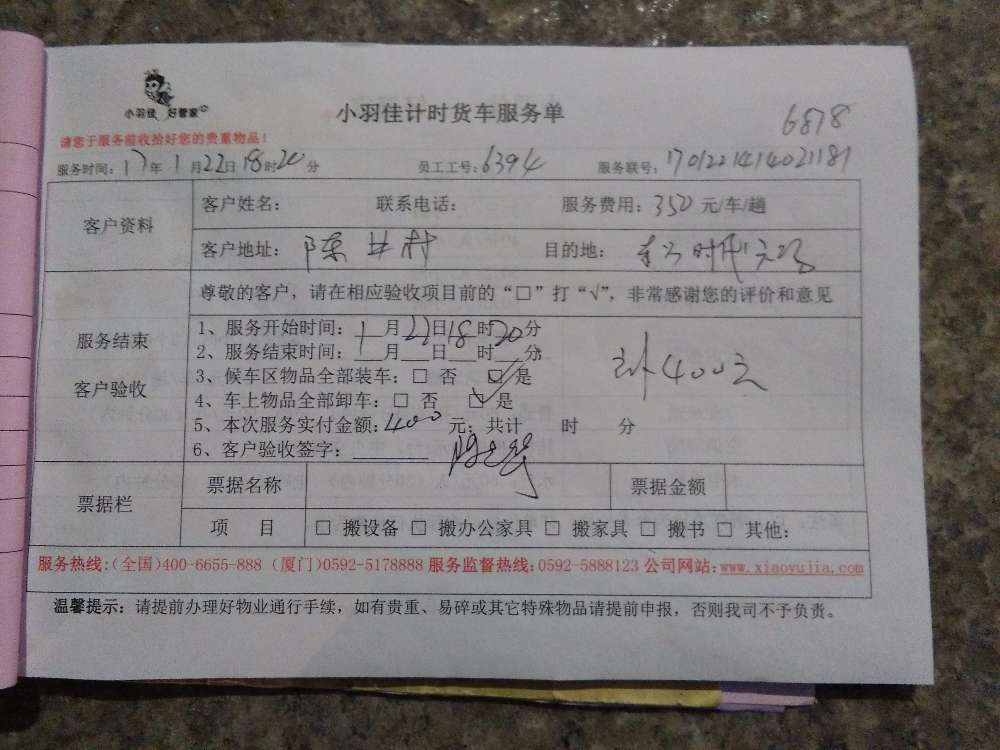 小羽佳 好管家
小羽佳计时货车服务单
6878
请您于服务前收拾好您的贵重物品!
服务时间: 17年 1月22日18时20分 员工工号: 6394 服务联号: 1701221414021181
客户资料
客户姓名: 联系电话: 服务费用: 350 元/车/趟
客户地址: 陈井村 目的地:
尊敬的客户，请在相应验收项目前的“□”打“√”，非常感谢您的评价和意见
服务结束
客户验收
1、服务开始时间: 1月22日18时20分
2、服务结束时间: __月__日__时__分
3、候车区物品全部装车: □ 否 □ 是
4、车上物品全部卸车: □ 否 □ 是
5、本次服务实付金额: 400 元; 共计 时 分
6、客户验收签字:
400元
票据栏
票据名称 票据金额
项 目 □ 搬设备 □ 搬办公家具 □ 搬家具 □ 搬书 □ 其他:
服务热线:(全国)400-6655-888 (厦门)0592-5178888 服务监督热线:0592-5888123 公司网站:www.xiaoyujia.com
温馨提示: 请提前办理好物业通行手续，如有贵重、易碎或其它特殊物品请提前申报，否则我司不予负责。